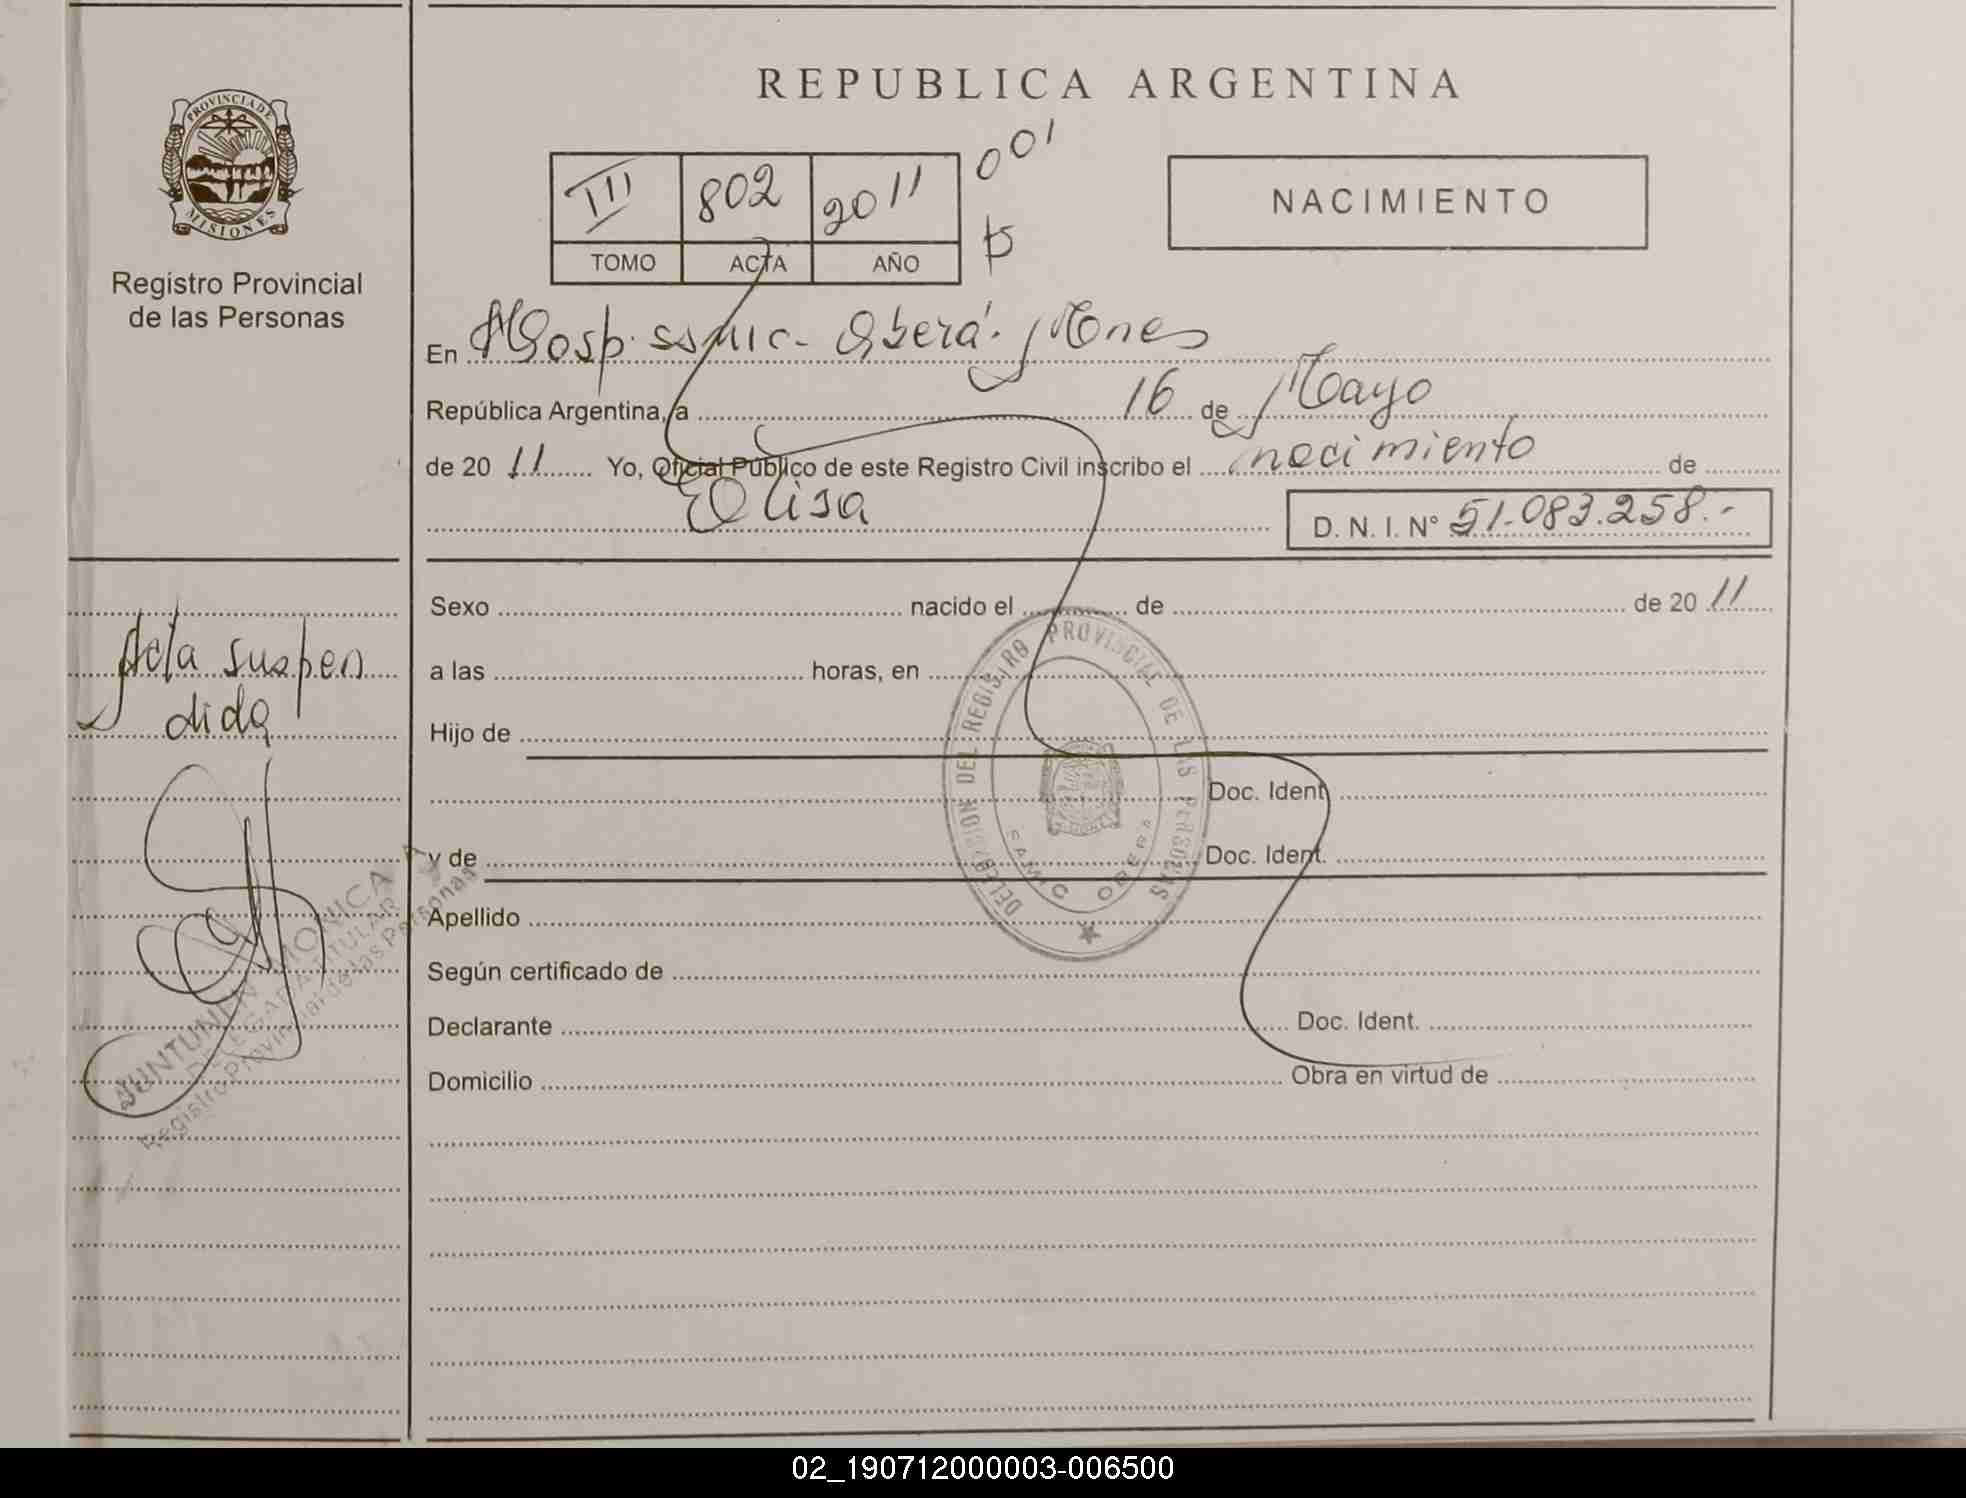 REPUBLICA ARGENTINA
PROVINCIA DE
MISIONES
Registro Provincial
de las Personas
III 802 2011 001
TOMO ACTA AÑO
NACIMIENTO
En Hosp. ssmic - Oberá. Mnes
República Argentina, a 16 de Mayo
de 20 11 Yo, Oficial Público de este Registro Civil inscribo el nacimiento de
Elisa
D. N. I. N° 51.083.258.-
Sexo nacido el de de 20 11
a las horas, en
Hijo de
Doc. Ident.
y de Doc. Ident.
Apellido
Según certificado de
Declarante Doc. Ident.
Domicilio Obra en virtud de
Acta suspen
dida
DELEGACION DEL REGISTRO PROVINCIAL DE LAS PERSONAS
SAMIC OBERA
MONICA
DELEGADA TITULAR
Registro Provincial de las Personas
02_190712000003-006500